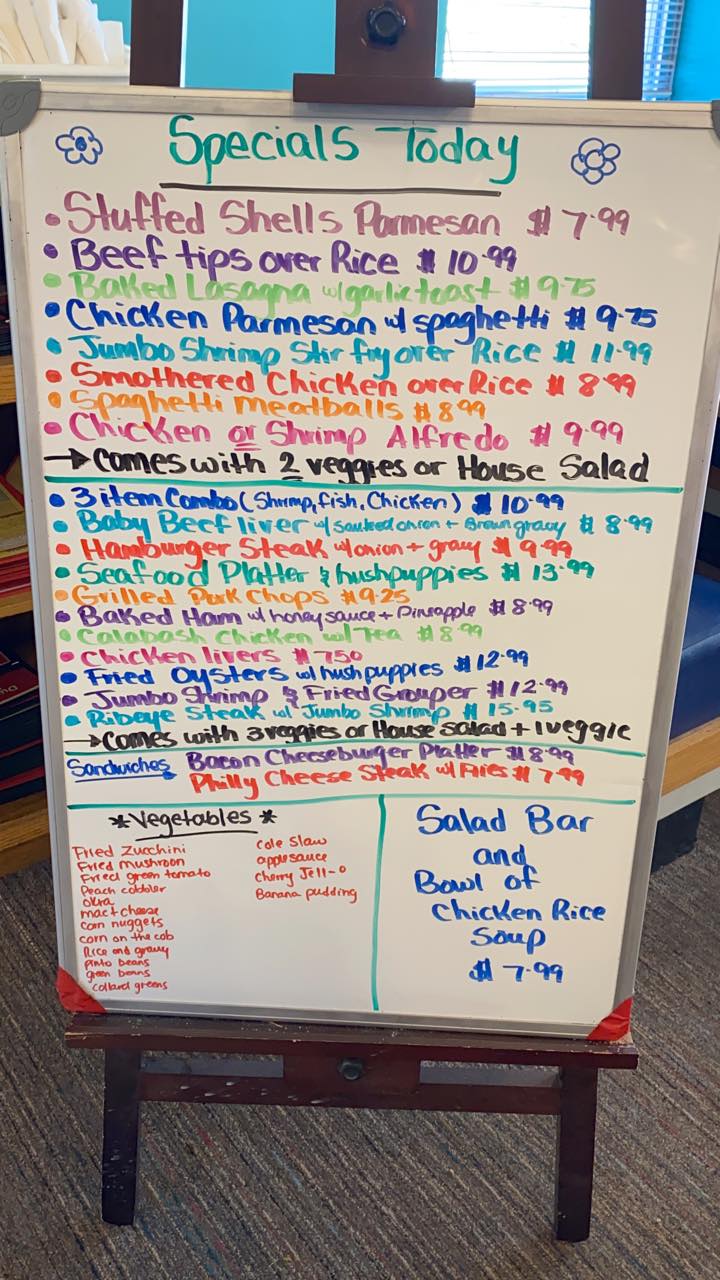 Specials Today
• Stuffed Shells Parmesan $7.99
• Beef tips over Rice $10.99
• Baked Lasagna w/garlic toast $9.75
• Chicken Parmesan w/ spaghetti $9.75
• Jumbo Shrimp Stir fry over Rice $11.99
• Smothered Chicken over Rice $8.99
• Spaghetti Meatballs $8.99
• Chicken or Shrimp Alfredo $9.99
→ Comes with 2 veggies or House Salad
• 3 item Combo (Shrimp, fish, Chicken) $10.99
• Baby Beef liver w/ sauteed onion + Brown gravy $8.99
• Hamburger Steak w/onion + gravy $9.99
• Seafood Platter & hushpuppies $13.99
• Grilled Pork Chops $9.25
• Baked Ham w/ honey sauce + Pineapple $8.99
• Calabash Chicken w/ Tea $8.99
• Chicken livers $7.50
• Fried Oysters w/ hush puppies $12.99
• Jumbo Shrimp & Fried Grouper $12.99
• Ribeye Steak w/ Jumbo Shrimp $15.95
→ Comes with 3 veggies or House salad + 1 veggie
Sandwiches Bacon Cheeseburger Platter $8.99
Philly Cheese Steak w/ Fries $7.99
*Vegetables*
Fried Zucchini
Fried mushroom
Fried green tomato
Peach cobbler
okra
mac+cheese
corn nuggets
corn on the cob
Rice and gravy
Pinto beans
green beans
collard greens
cole Slaw
applesauce
Cherry Jell-o
Banana pudding
Salad Bar
and
Bowl of
Chicken Rice
Soup
$7.99